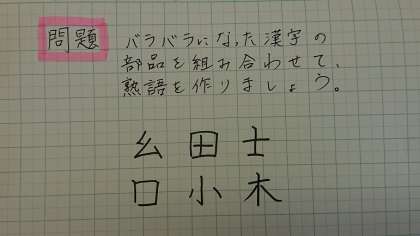 問題 バラバラになった漢字の
部品を組み合わせて、
熟語を作りましょう。
幺 田 士
口 小 木